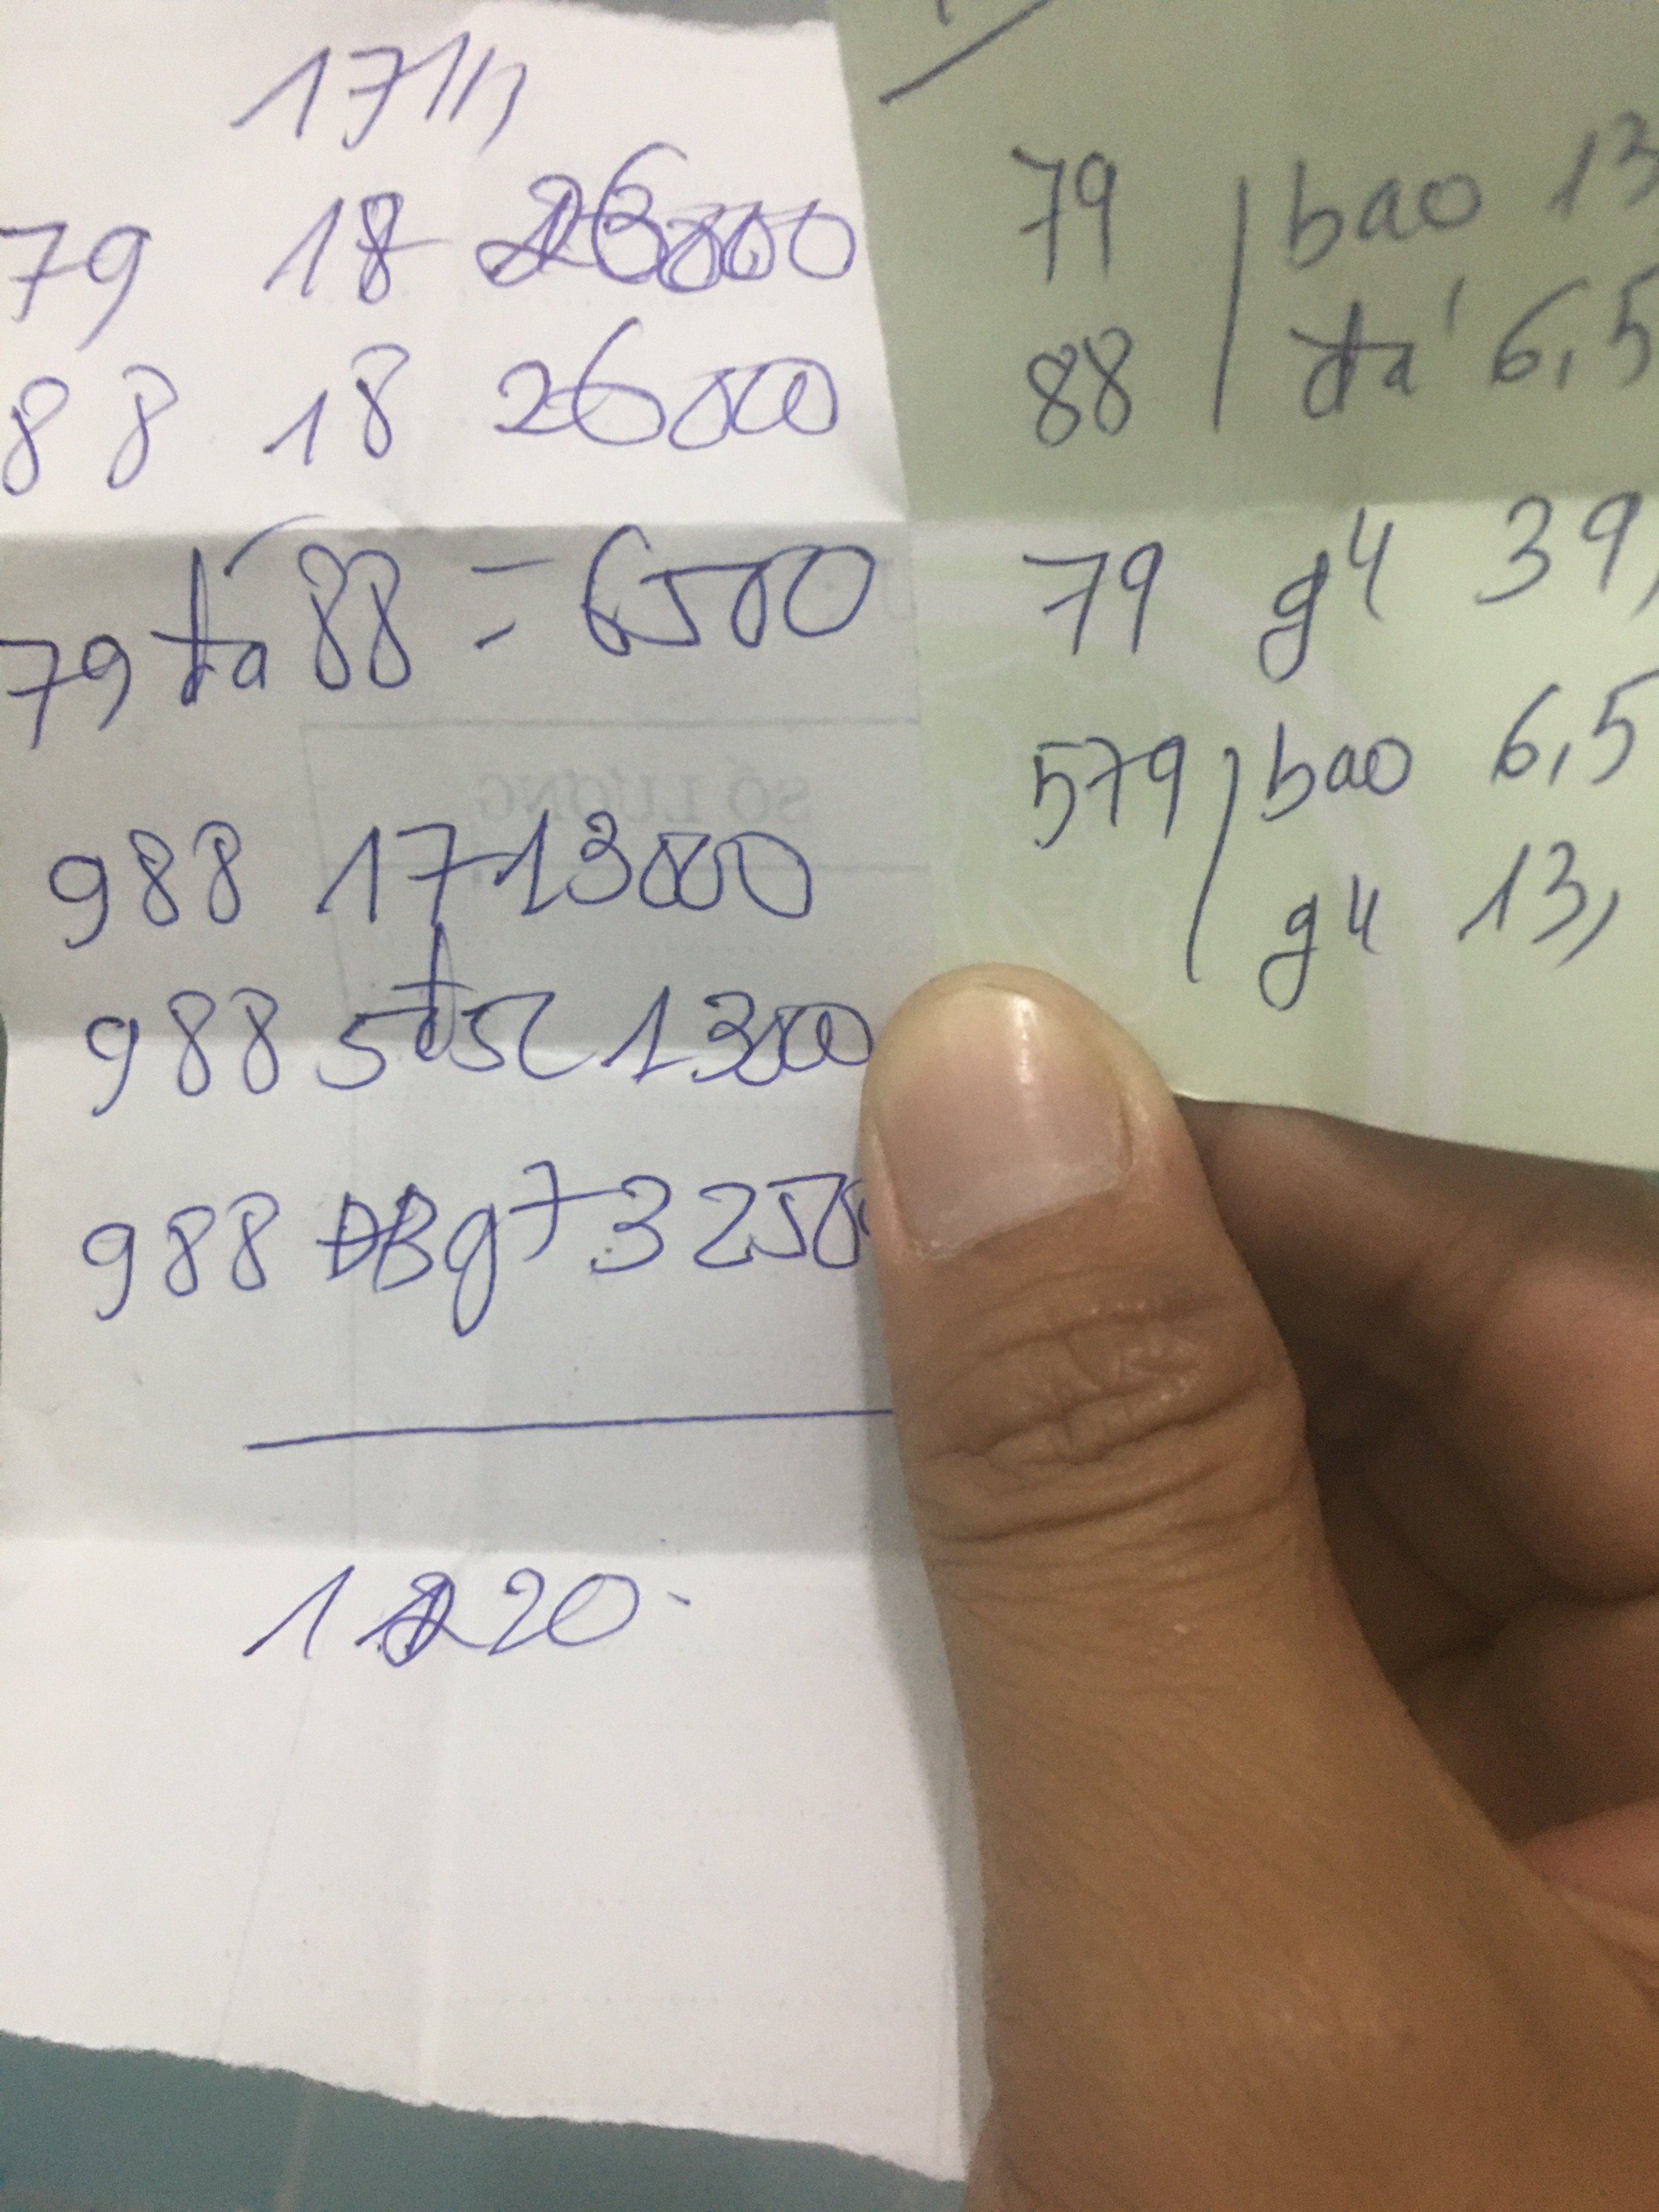 1711
79 18 26000
88 18 26000
79 đá 88 = 6500
988 17 13000
988 5đ5c 13000
988 ĐB g7 3250
1220
79 bao 13
88 đá 6,5
79 g4 39,
579 bao 6,5
g4 13,
SỐ LƯỢNG